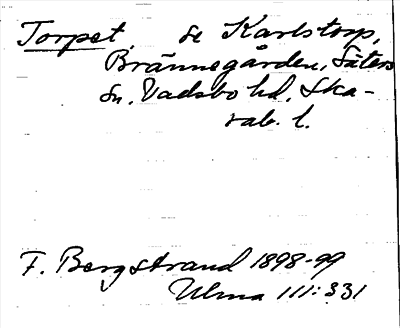 Torpet, se Karlstorp,
Brännegården, Säters
sn, Vadsbo hd, Ska-
rab. l.
F. Bergstrand 1898-99
Ulma 111:331